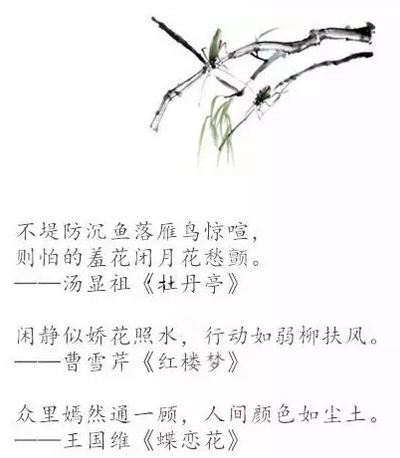 不堤防沉鱼落雁鸟惊喧，
则怕的羞花闭月花愁颤。
——汤显祖《牡丹亭》
闲静似娇花照水，行动如弱柳扶风。
——曹雪芹《红楼梦》
众里嫣然通一顾，人间颜色如尘土。
——王国维《蝶恋花》